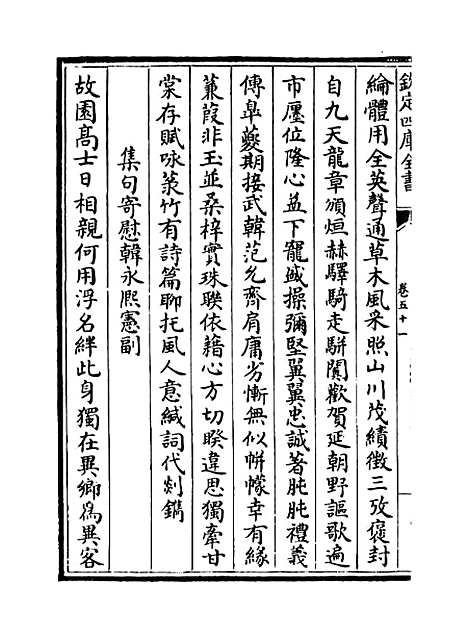 欽定四庫全書
卷五十一
綸體用全英聲通草木風采照山川茂績徴三攷褒封
自九天龍章頒烜赫驛騎走駢闐歡賀延朝野謳歌遍
市廛位隆心益下寵盛操彌堅翼翼忠誠著肫肫禮義
傳臯夔期接武韓范允齊肩庸劣慚無似帡幪幸有緣
蒹葭非玉並桑梓實珠聯依藉心方切暌違思獨牽甘
棠存賦咏菉竹有詩篇聊托風人意緘詞代剡鐫
集句寄慰韓永熙憲副
故園高士日相親何用浮名絆此身獨在異鄉為異客